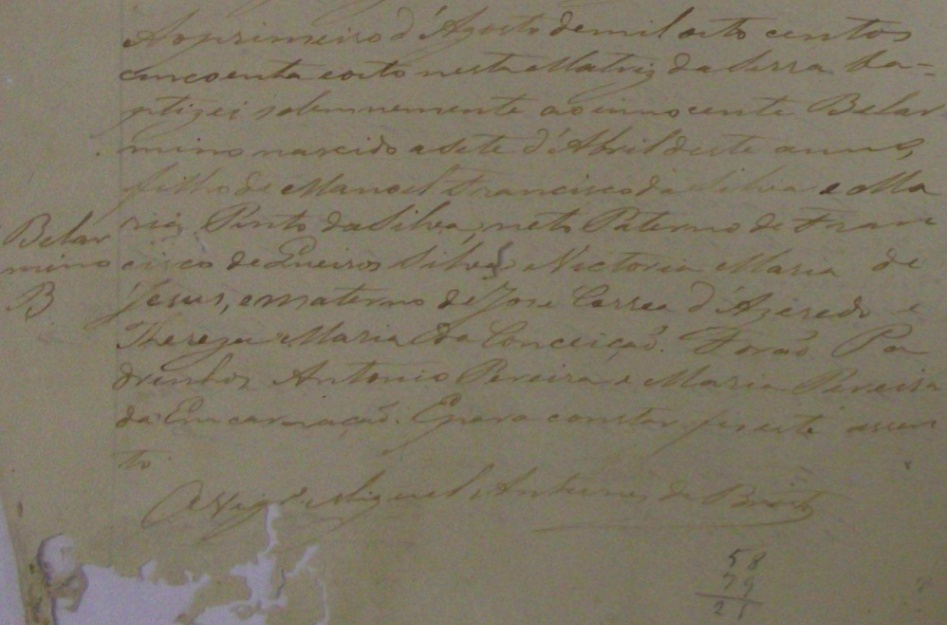 Ao primeiro d'Agosto de mil oito centos
cincoenta e oito nesta Matriz da Serra ba=
ptizei solemnemente ao innocente Belar
mino nascido a sete d'Abril deste anno,
filho de Manoel Francisco da Silva e Ma
ria Pinto da Silva, neto Paterno de Fran
cisco de Queiros Silva e Victoria Maria de
Jesus, e materno de Jose Correa d'Azeredo e
Thereza Maria da Conceição. Forão Pa
drinhos Antonio Pereira e Maria Pereira
da Encarnação. E para constar fis este assen
to.
Belar
mino
B
O Vigr.º Miguel Antunes de Brito
58
79
21